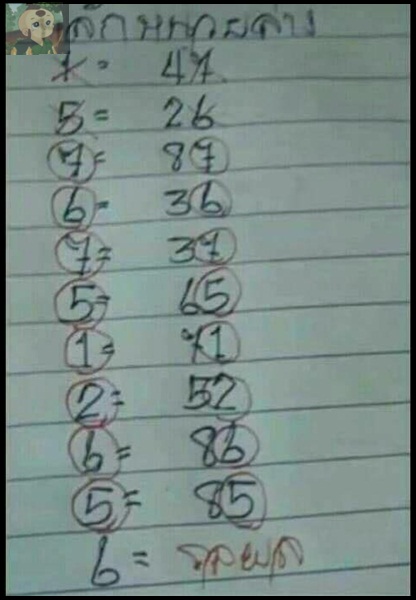 หลักหน่วยล่าง
7 = 47
5 = 26
7 = 87
6 = 36
7 = 37
5 = 65
1 = 71
2 = 52
6 = 86
5 = 85
6 =